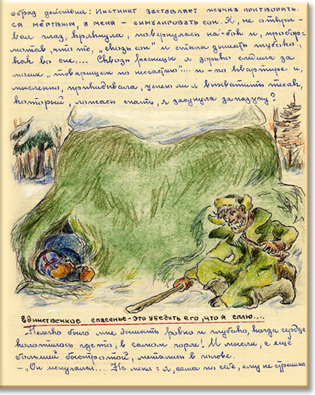 образ действия: Инстинкт заставляет жучка притворять-
ся мёртвым, а меня – симулировать сон. Я, не откры-
вая глаз, крякнула, повернулась на-бок и, пробор-
мотав что-то, "сквозь сон" и стала дышать глубоко,
как во сне,... Сквозь ресницы я зорко следила за
моим "товарищем по несчастью"... и – по квартире и,
мысленно, прикидывала, успею ли я выхватить тесак,
который, ложась спать, я засунула за пазуху?
Единственное спасенье – это убедить его, что я сплю....
Нелегко было мне дышать ровно и глубоко, когда сердце
колотилось где-то, в самом горле! И мысли, с ещё
большей быстротой, метались в голове.
– Он испугался... Не меня: я, сама по себе, ему не страшна